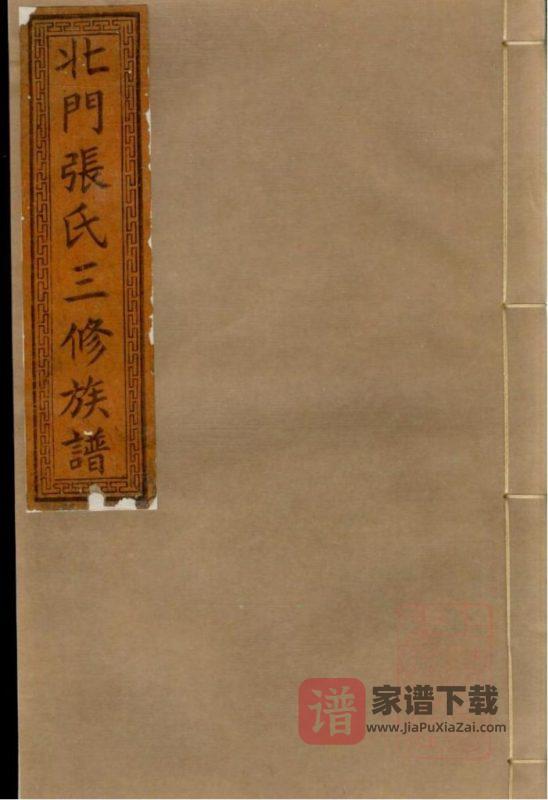 北門張氏三修族譜
谱
家谱下载
www.JiaPuXiaZai.com